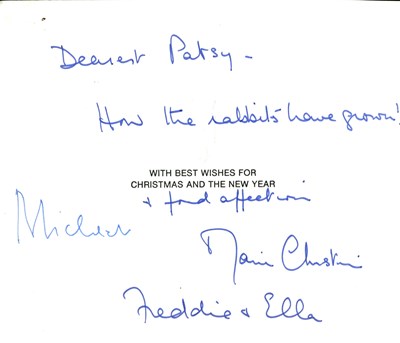 Dearest Patsy -
How the rabbits have grown!
WITH BEST WISHES FOR
CHRISTMAS AND THE NEW YEAR
+ fond affection
Michael
Marie Christine
Freddie + Ella